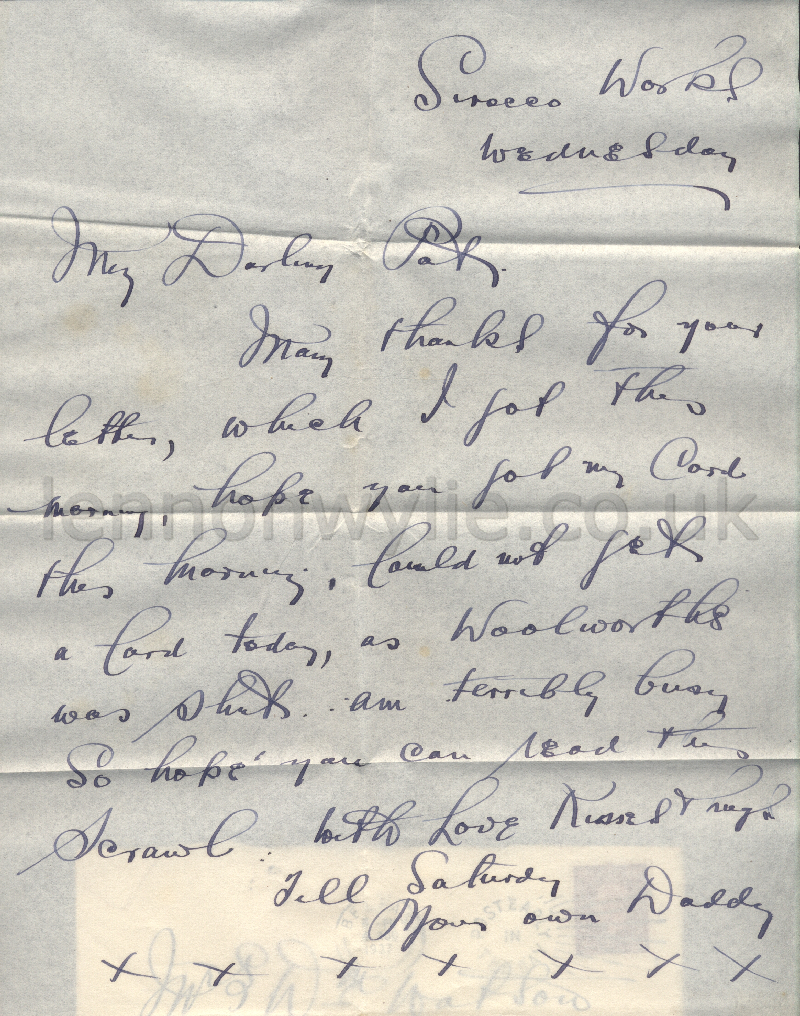 Sirocco Works
Wednesday
My Darling Pat,
Many thanks for your
letter, which I got this
morning, hope you got my Card
lennonwylie.co.uk
this morning, Could not get
a Card today, as Woolworths
was shut. am terribly busy
So hope you can read this
Scrawl. With Love Kisses & hugs
Till Saturday
Your own Daddy
x x x x x x x
Watson